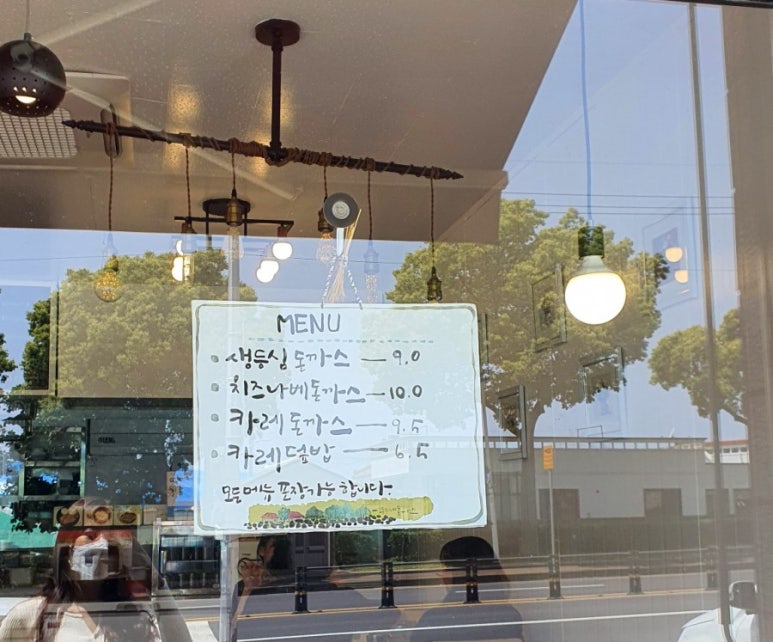 MENU
생등심 돈까스 — 9.0
치즈나베돈까스 — 10.0
카레돈까스 — 9.5
카레덮밥 — 6.5
모든메뉴 포장가능합니다.